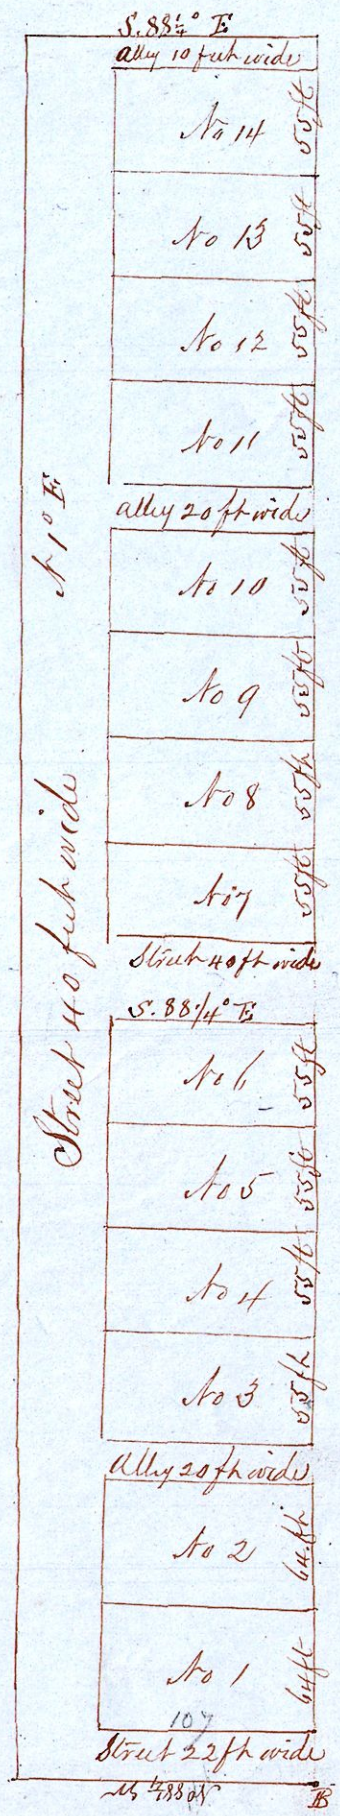 S. 88¼° E
Alley 10 feet wide
No 14 55 ft
No 13 55 ft
No 12 55 ft
No 11 55 ft
N 1° E
alley 20 ft wide
No 10 55 ft
No 9 55 ft
No 8 55 ft
No 7 55 ft
Street 40 feet wide
Street 40 ft wide
S. 88 1/4° E
No 6 55 ft
No 5 55 ft
No 4 55 ft
No 3 55 ft
Alley 20 ft wide
No 2 64 ft
No 1 64 ft
107
Street 22 ft wide
B